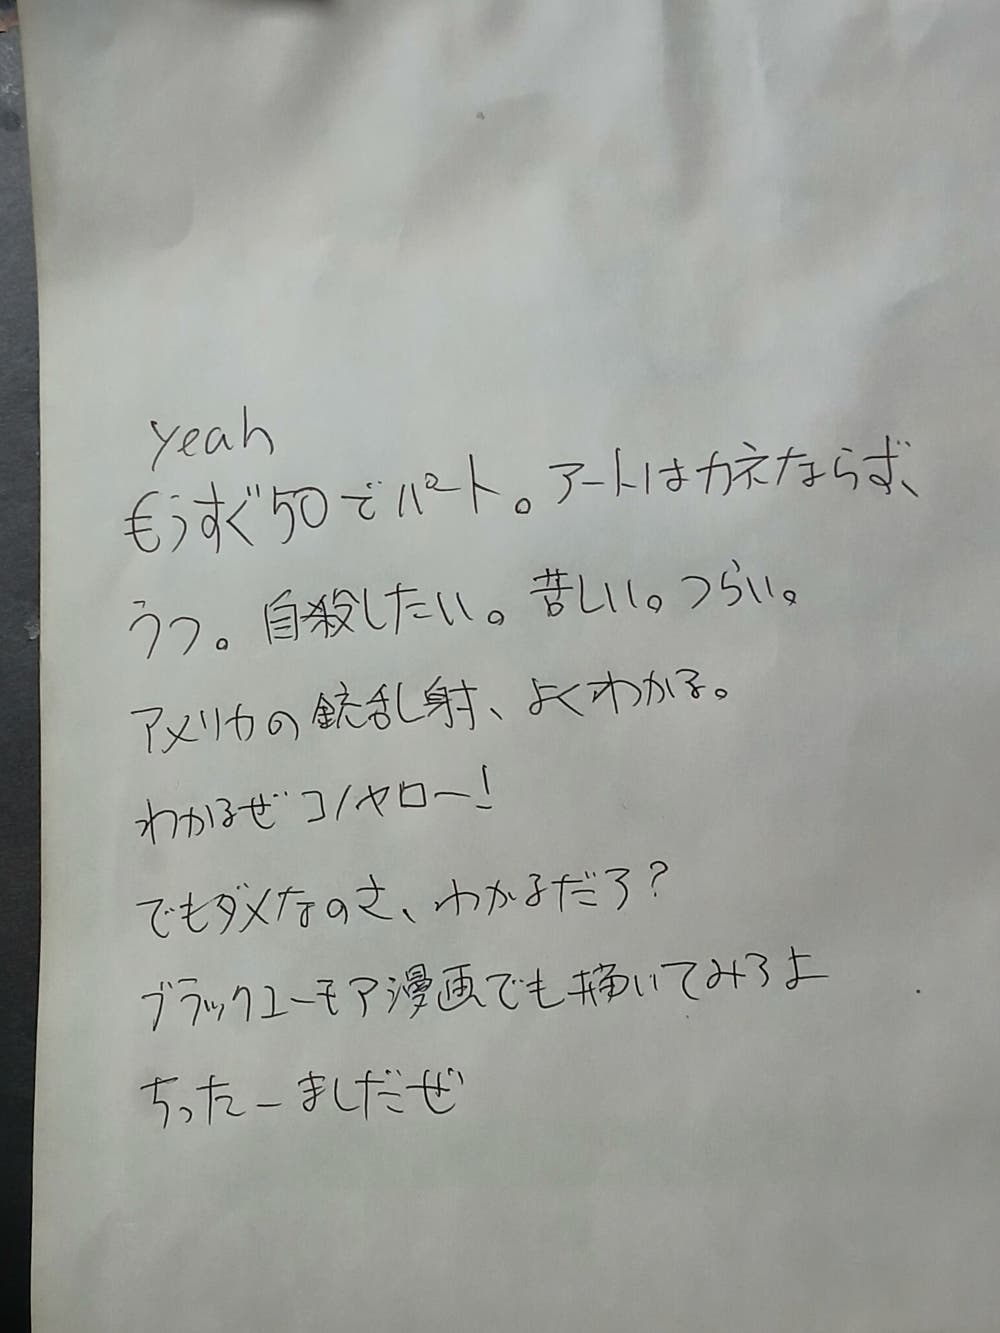 yeah
もうすぐ50でパート。アートはカネならず、
うつ。自殺したい。苦しい。つらい。
アメリカの銃乱射、よくわかる。
わかるぜコノヤロー!
でもダメなのさ、わかるだろ?
ブラックユーモア漫画でも描いてみろよ
ちったーましだぜ